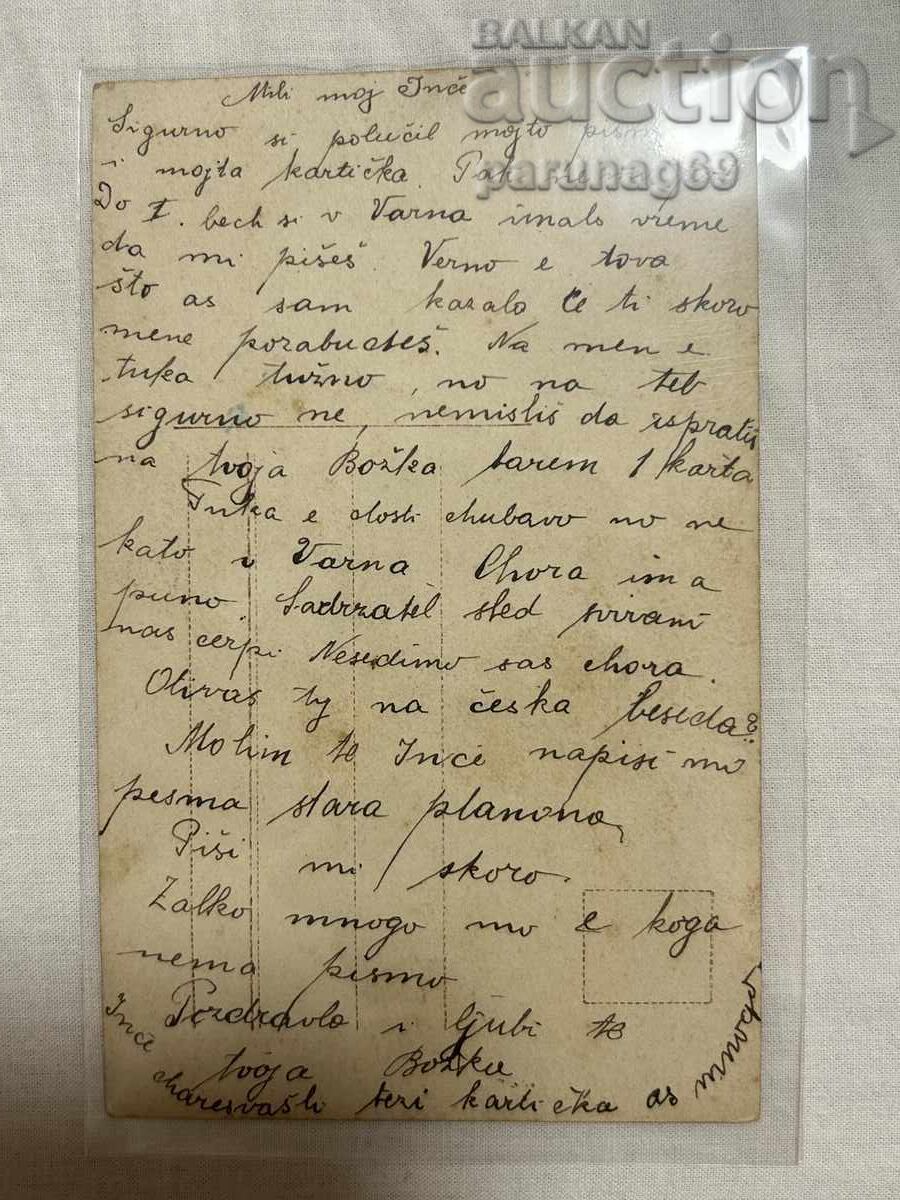 BALKAN
auction
parunag69
Mili moj Inče
Sigurno si polučil mojto pismo
i mojta kartička. Pak
Do I. bech si v Varna imalo vreme
da mi pišeš. Verno e tova
što as sam kazala če ti skoro
mene pozabudeš. Na men e
tuka tužno, no na teb
sigurno ne, nemisliš da ispratiš
na tvoja Božka barem 1 karta
Tuka e dosti chubavo no ne
kato v Varna Chora ima
puno Sadržatel sled
nas čerpi Nesedimo sas chora.
Otivaš ty na česka beseda?
Molim te Inče napiši mo
pesma stara planona
Piši mi skoro.
Žalko mnogo mo e koga
nema pismo
Pozdravlo i ljubi te
tvoja Božka
Inče charesvašli tezi kartička as